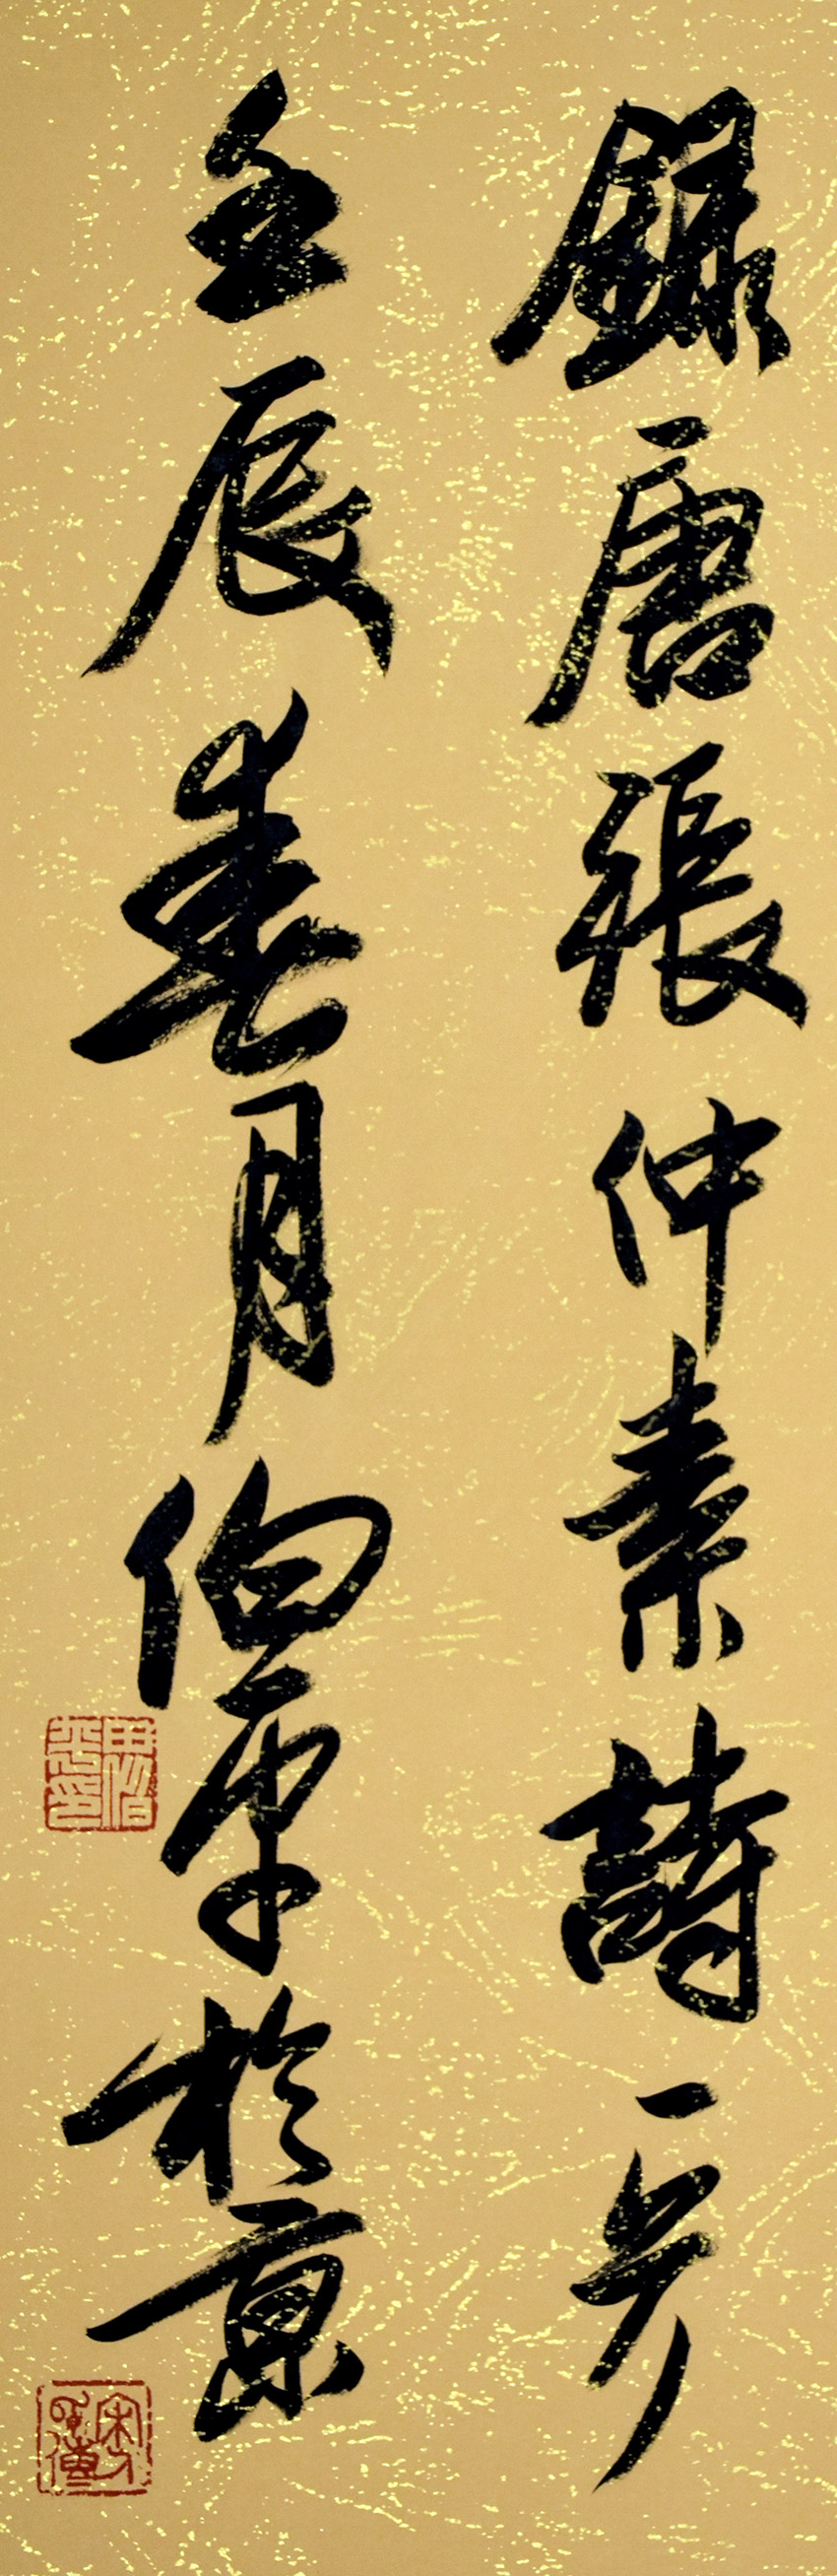 錄唐張仲素詩一首
壬辰春月伯平於京